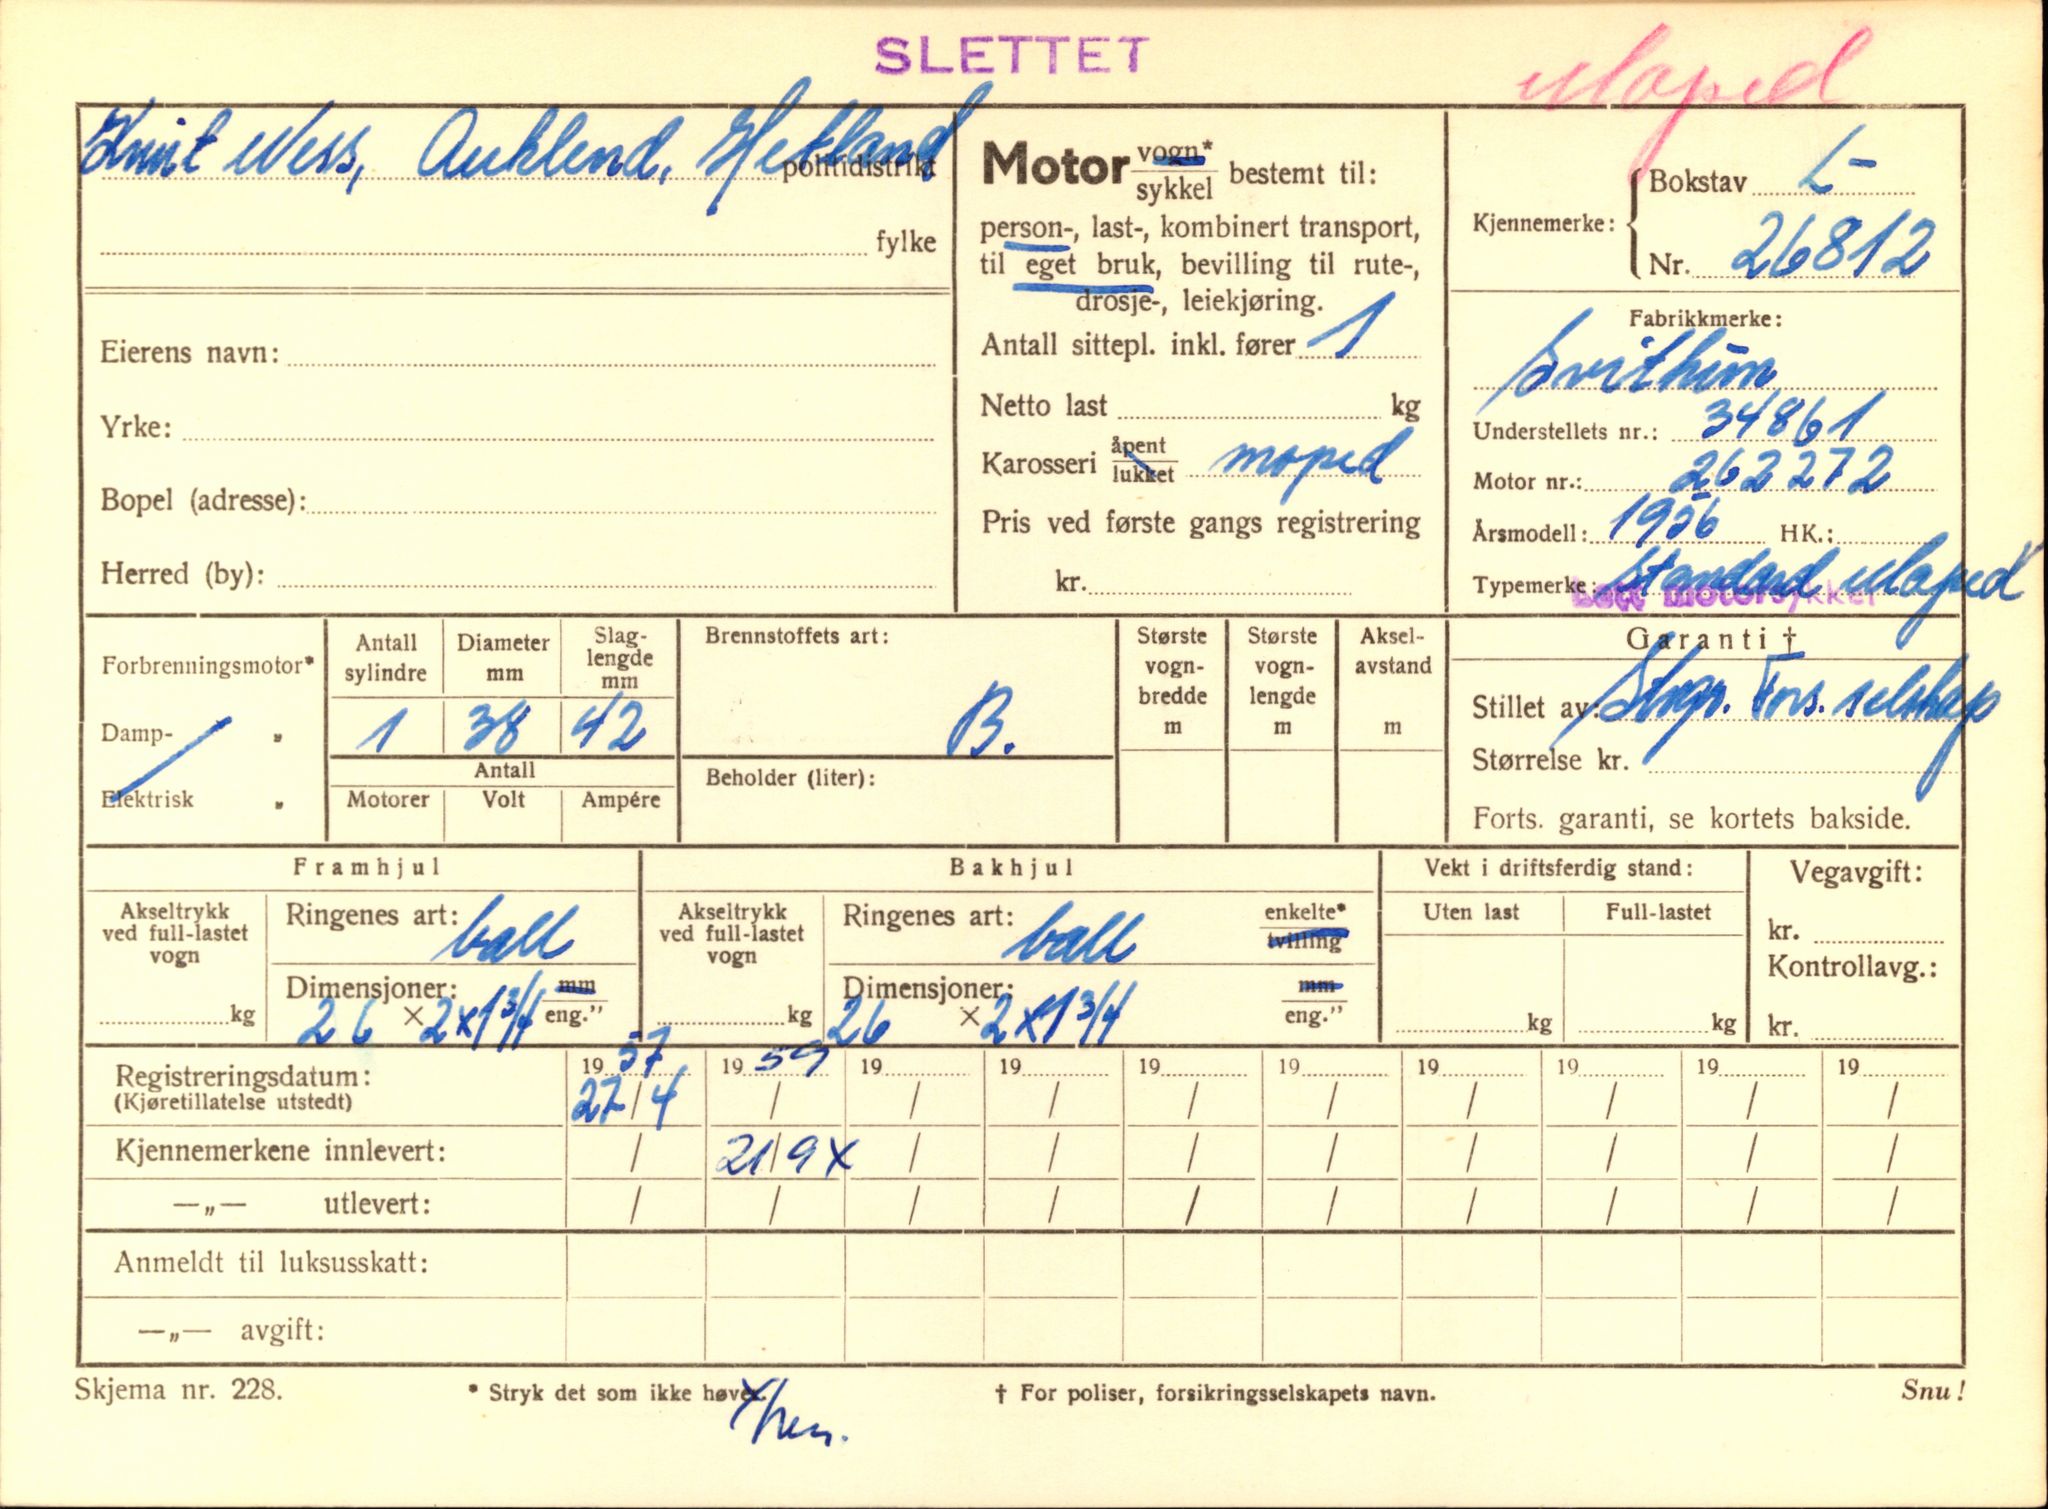 SLETTET
Moped
Knut Ness, Auklend, Hetland politidistrikt
fylke
Eierens navn:
Yrke:
Bopel (adresse):
Herred (by):
Motor vogn* / sykkel bestemt til:
person-, last-, kombinert transport,
til eget bruk, bevilling til rute-,
drosje-, leiekjøring.
Antall sittepl. inkl. fører 1
Netto last kg
Karosseri åpent / lukket moped
Pris ved første gangs registrering
kr.
Kjennemerke: Bokstav L-
Nr. 26812
Fabrikkmerke:
Svithun
Understellets nr.: 34861
Motor nr.: 262272
Årsmodell: 1956 HK.:
Typemerke: Standard Moped
Lett motorsykkel
Forbrenningsmotor*
Damp- „
Elektrisk „
Antall sylindre Diameter mm Slag-lengde mm
1 38 42
Antall
Motorer Volt Ampére
Brennstoffets art:
B.
Beholder (liter):
Største vogn-bredde m
Største vogn-lengde m
Aksel-avstand m
Garanti †
Stillet av: Forsselskap
Størrelse kr.
Forts. garanti, se kortets bakside.
Framhjul
Akseltrykk ved full-lastet vogn
kg
Ringenes art: ball
Dimensjoner: mm
26 × 2x1 3/4 eng.”
Bakhjul
Akseltrykk ved full-lastet vogn
kg
Ringenes art: ball enkelte* / tvilling
Dimensjoner: mm
26 × 2x1 3/4 eng.”
Vekt i driftsferdig stand:
Uten last Full-lastet
kg kg
Vegavgift:
kr.
Kontrollavg.:
kr.
Registreringsdatum: 1957 1959 19 19 19 19 19 19 19 19
(Kjøretillatelse utstedt) 27/4 / / / / / / / / /
Kjennemerkene innlevert: / 21/9 x / / / / / / / /
—„— utlevert: / / / / / / / / / /
Anmeldt til luksusskatt:
—„— avgift:
Skjema nr. 228. * Stryk det som ikke høver. † For poliser, forsikringsselskapets navn. Snu!